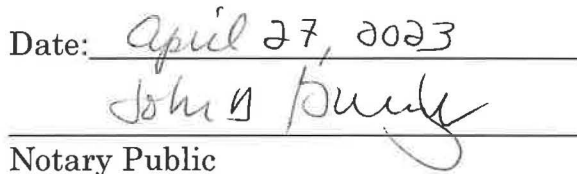 Date: April 27, 2023
John B
Notary Public